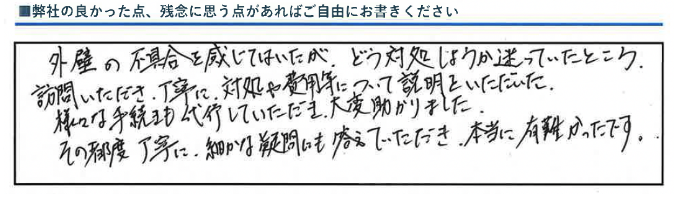 ■弊社の良かった点、残念に思う点があればご自由にお書きください
外壁の不具合を感じてはいたが、どう対処しようか迷っていたところ、
訪問いただき、丁寧に、対処や費用等について説明をいただいた。
様々な手続きも代行していただき、大変助かりました。
その都度丁寧に、細かな疑問にも答えていただき、本当に有難かったです。